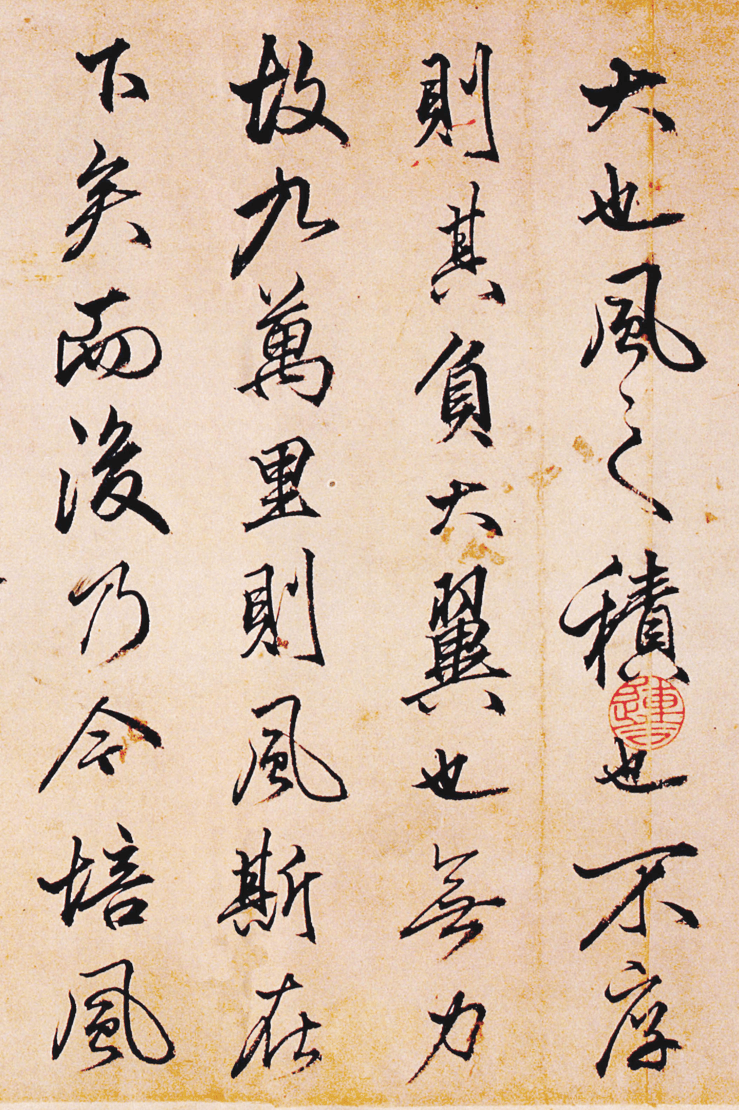 大也風之積也不厚
則其負大翼也無力
故九萬里則風斯在
下矣而後乃今培風